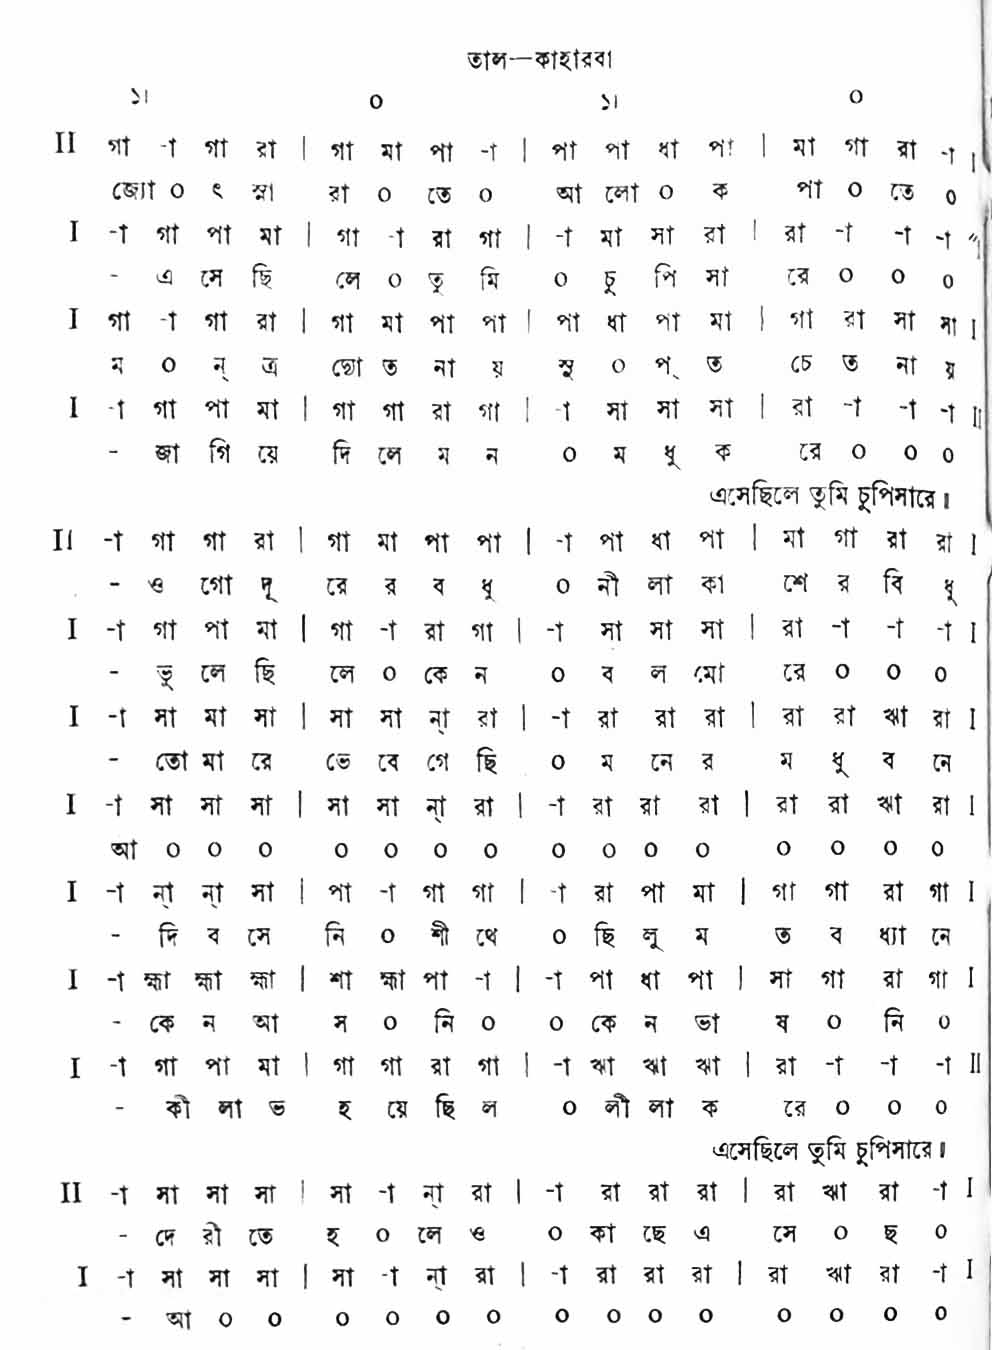 তাল—কাহারবা
১। ০ ১। ০
II গা -া গা রা | গা মা পা -া | পা পা ধা পা | মা গা রা -া |
জ্যো ০ ৎ স্না রা ০ তে ০ আ লো ০ ক পা ০ তে ০
I -া গা পা মা | গা -া রা গা | -া মা সা রা | রা -া -া -া I
- এ সে ছি লে ০ তু মি ০ চু পি সা রে ০ ০ ০
I গা -া গা রা | গা মা পা পা | পা ধা পা মা | গা রা সা সা I
ম ০ ন্ ত্র দ্যো ত না য় সু ০ প্ ত চে ত না য়
I -া গা পা মা | গা গা রা গা | -া সা সা সা | রা -া -া -া II
- জা গি য়ে দি লে ম ন ০ ম ধু ক রে ০ ০ ০
এসেছিলে তুমি চুপিসারে॥
II -া গা গা রা | গা মা পা পা | -া পা ধা পা | মা গা রা রা I
- ও গো দূ রে র ব ধু ০ নী লা কা শে র বি ধু
I -া গা পা মা | গা -া রা গা | -া সা সা সা | রা -া -া -া I
- ভু লে ছি লে ০ কে ন ০ ব ল মো রে ০ ০ ০
I -া সা মা সা | সা সা ন্া রা | -া রা রা রা | রা রা ঋা রা I
- তো মা রে ভে বে গে ছি ০ ম নে র ম ধু ব নে
I -া সা সা সা | সা সা ন্া রা | -া রা রা রা | রা রা ঋা রা I
আ ০ ০ ০ ০ ০ ০ ০ ০ ০ ০ ০ ০ ০ ০ ০
I -া ন্া ন্া সা | পা -া গা গা | -া রা পা মা | গা গা রা গা I
- দি ব সে নি ০ শী থে ০ ছি লু ম ত ব ধ্যা নে
I -া হ্মা হ্মা হ্মা | শা হ্মা পা -া | -া পা ধা পা | সা গা রা গা I
- কে ন আ স ০ নি ০ ০ কে ন ভা ষ ০ নি ০
I -া গা পা মা | গা গা রা গা | -া ঋা ঋা ঋা | রা -া -া -া II
- কী লা ভ হ য়ে ছি ল ০ লী লা ক রে ০ ০ ০
এসেছিলে তুমি চুপিসারে॥
II -া সা সা সা | সা -া ন্া রা | -া রা রা রা | রা ঋা রা -া I
- দে রী তে হ ০ লে ও ০ কা ছে এ সে ০ ছ ০
I -া সা সা সা | সা -া ন্া রা | -া রা রা রা | রা ঋা রা -া I
- আ ০ ০ ০ ০ ০ ০ ০ ০ ০ ০ ০ ০ ০ ০